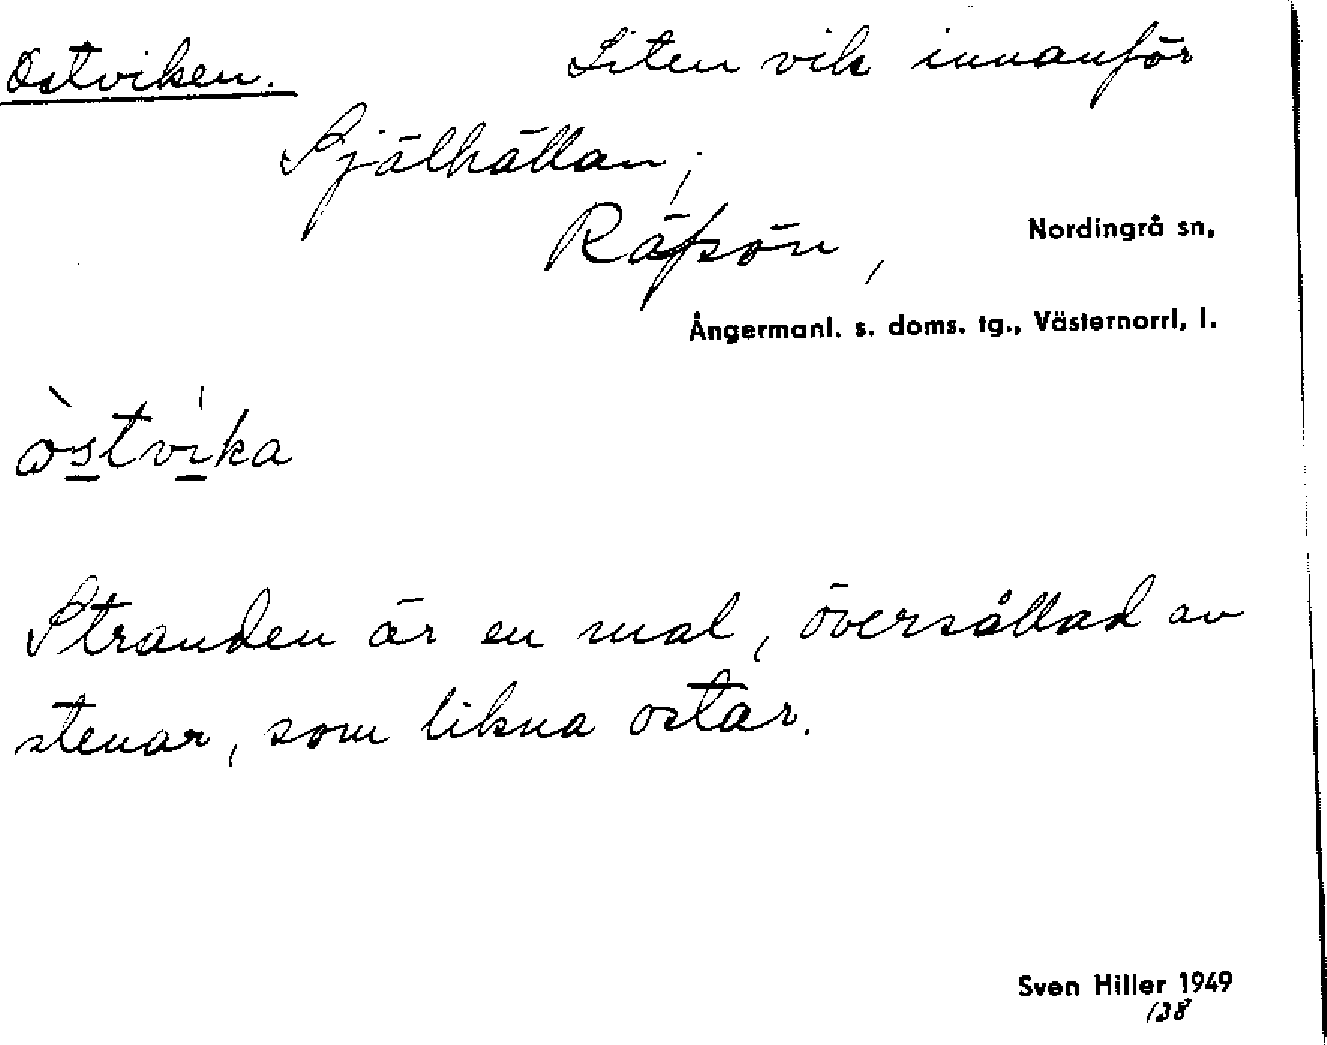 Ostviken. Liten vik innanför
Själhällan,
Räfsön, Nordingrå sn,
Ångermanl. s. doms. tg., Västernorrl, l.
òstvi̍ka
Stranden är en mal, översållad av
stenar, som likna ostar.
Sven Hiller 1949
138